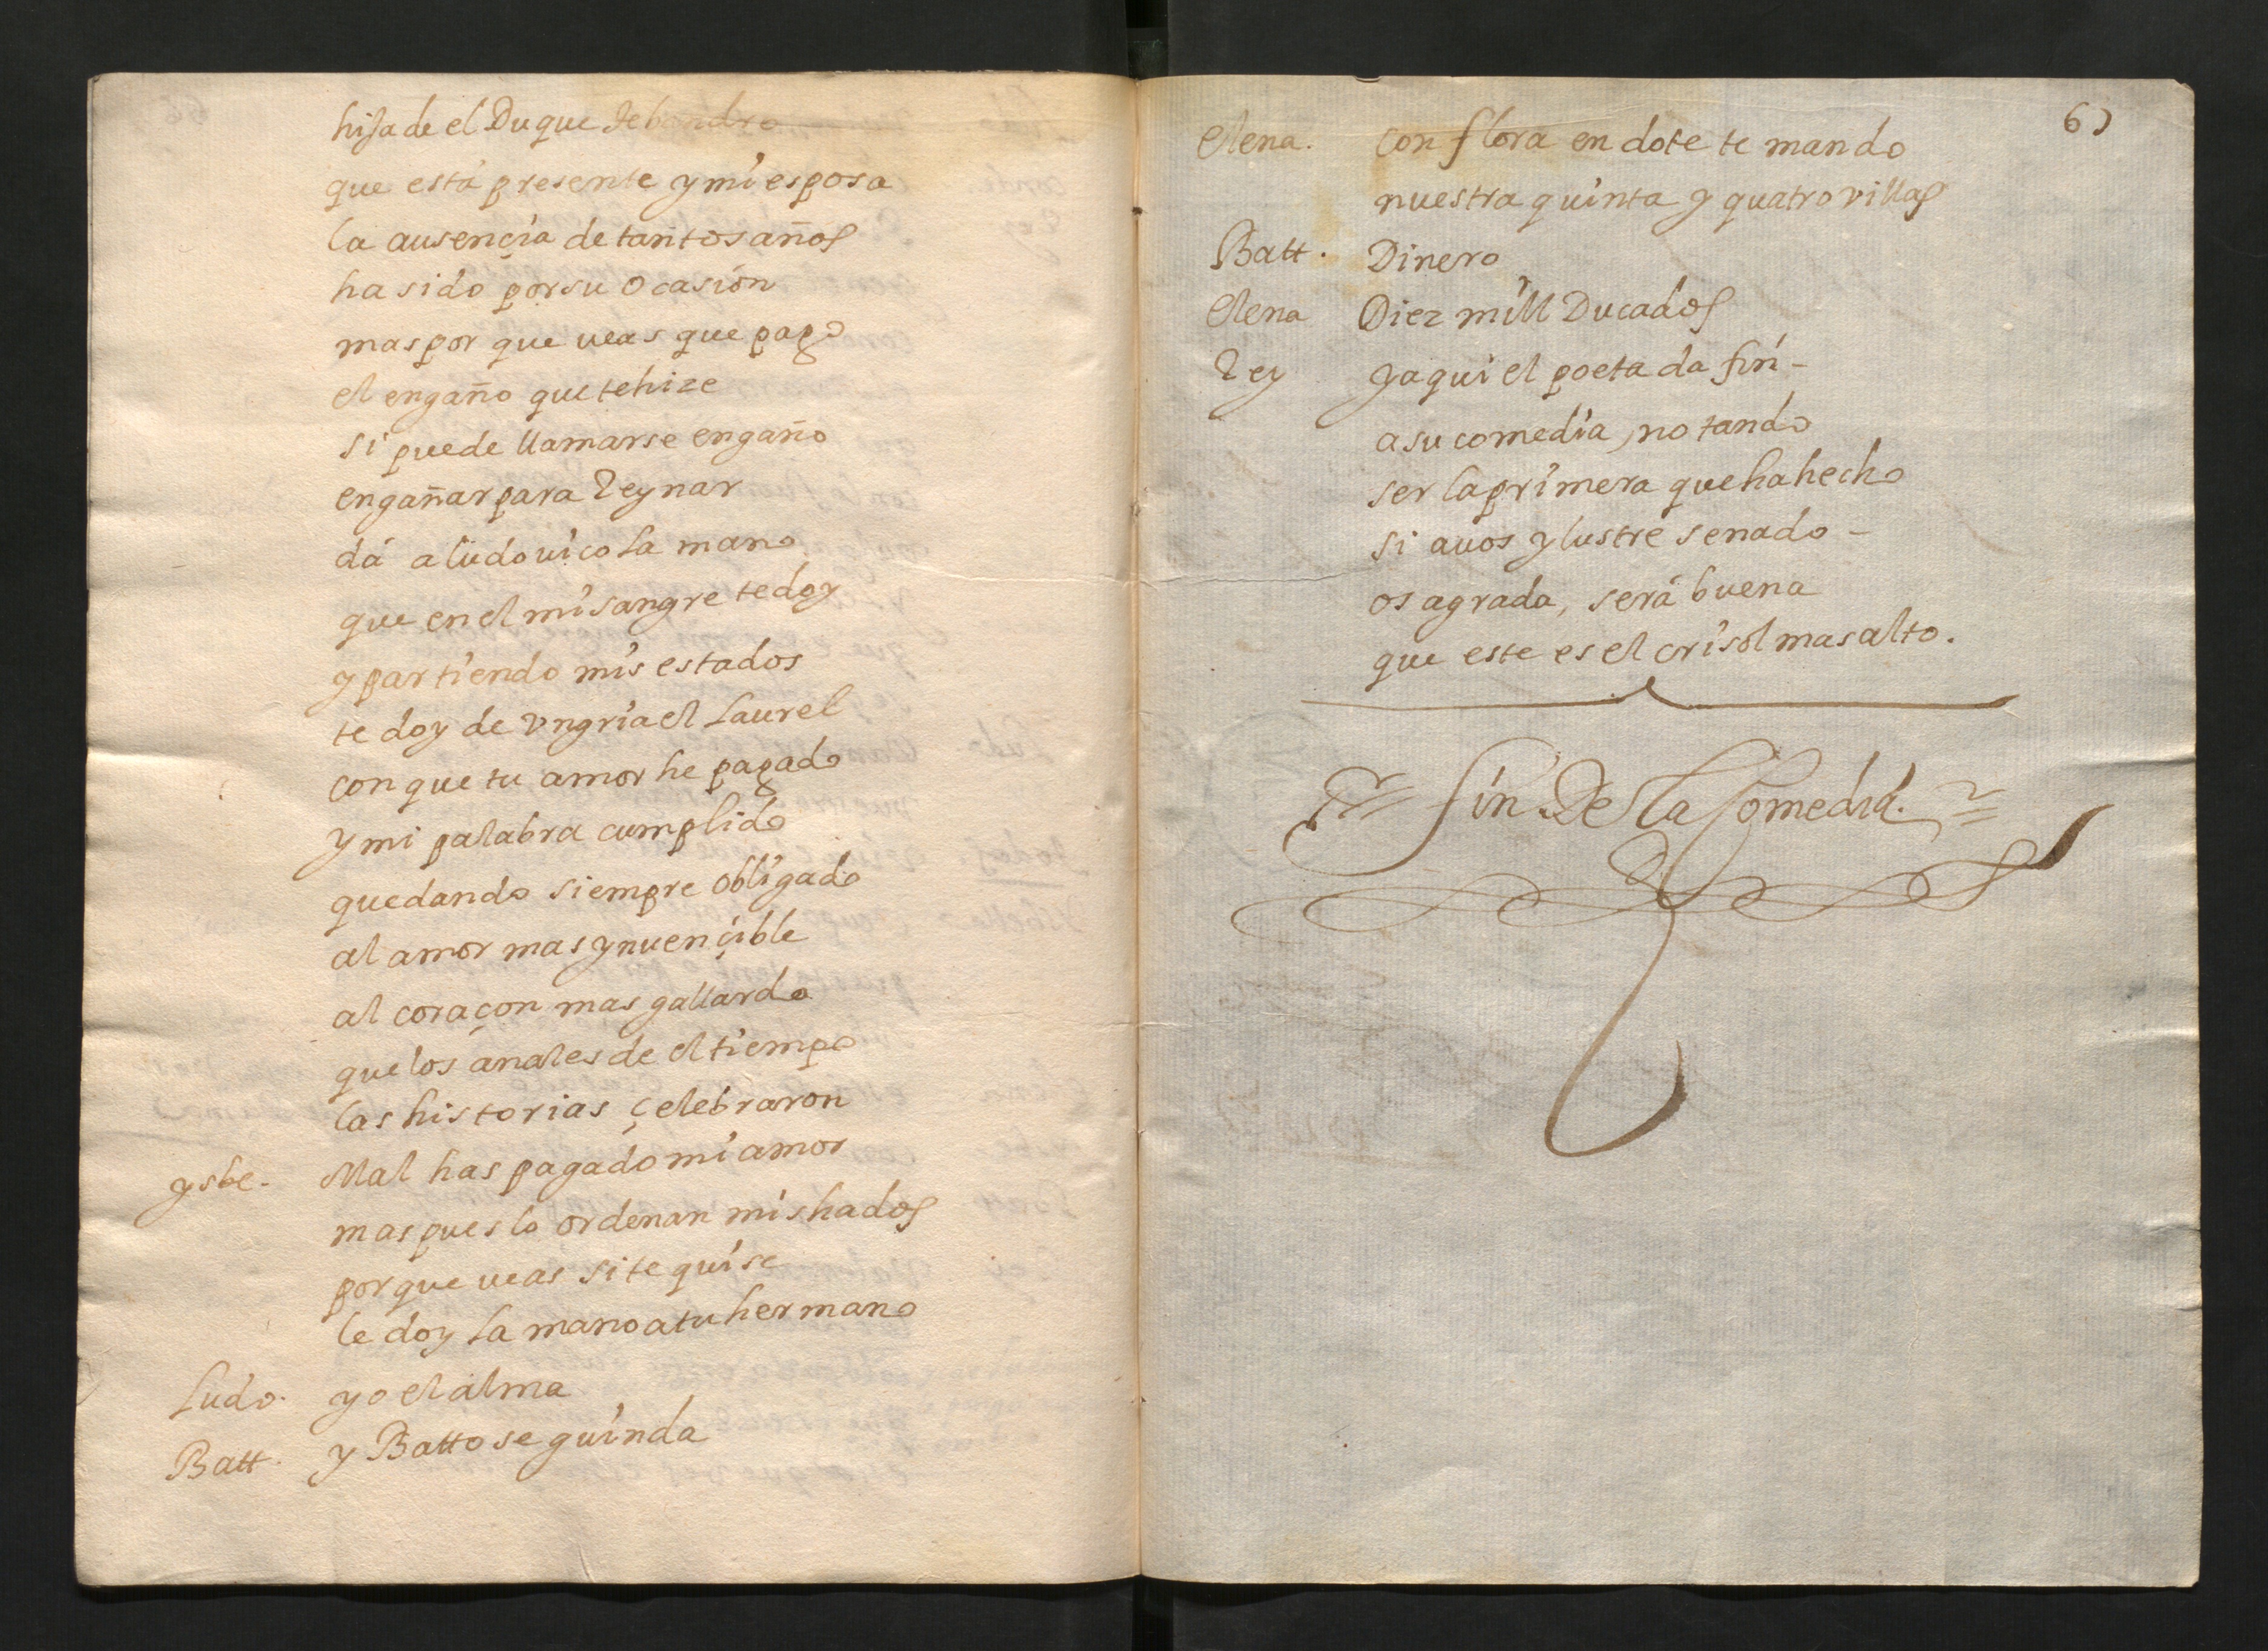 hija de el Duque
que está presente y mi esposa
la ausençia de tantos años
ha sido por su ocasion
mas por que ueas que pago
el engaño que te hize
si puede llamarse engaño
engañar para Reynar
dá a ludouico la mano
que en el mi sangre te doy
y partiendo mis estados
te doy de vngria el laurel
con que tu amor he pagado
y mi palabra cumplido
quedando siempre obligado
al amor mas ynuençible
al coraçon mas gallardo
que los anales de el tiempo
las historias çelebraron
ysbe. Mal has pagado mi amor
mas pues lo ordenan mis hados
por que ueas si te quise
le doy la mano a tu hermano
Ludo. yo el alma
Batt. y Batto se guinda
Elena. con flora en dote te mando
nuestra quinta y quatro villas
Batt. Dinero
Elena Diez mill Ducados
Rey y aqui el poeta da fin-
a su comedia, notando
ser la primera que ha hecho
si a uos ylustre senado -
os agrada, será buena
que este es el crisol mas alto.
fin De la Comedia.